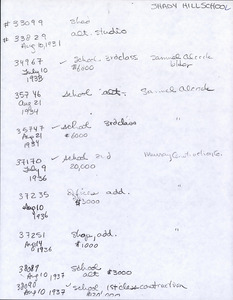 SHADY HILL SCHOOL
# 33099 Shop
# 33829 alt. studio
Aug 10, 1931
34967 ✓ School 3rd class Samuel
July 10 $6000
1933
35746 school alt. Samuel
Aug 21
1934
35747 ✓ school 3rd class "
Aug 21 $6000
1934
37170 ✓ school 2nd
July 9 20,000
1936
37235 Office add. "
Aug 10 $2000
1936
37251 Shop, add. "
$1000
1936
38089 School
Aug 10, 1937 alt $3000
38090 ✓ school 1st class construction
Aug 10 1937